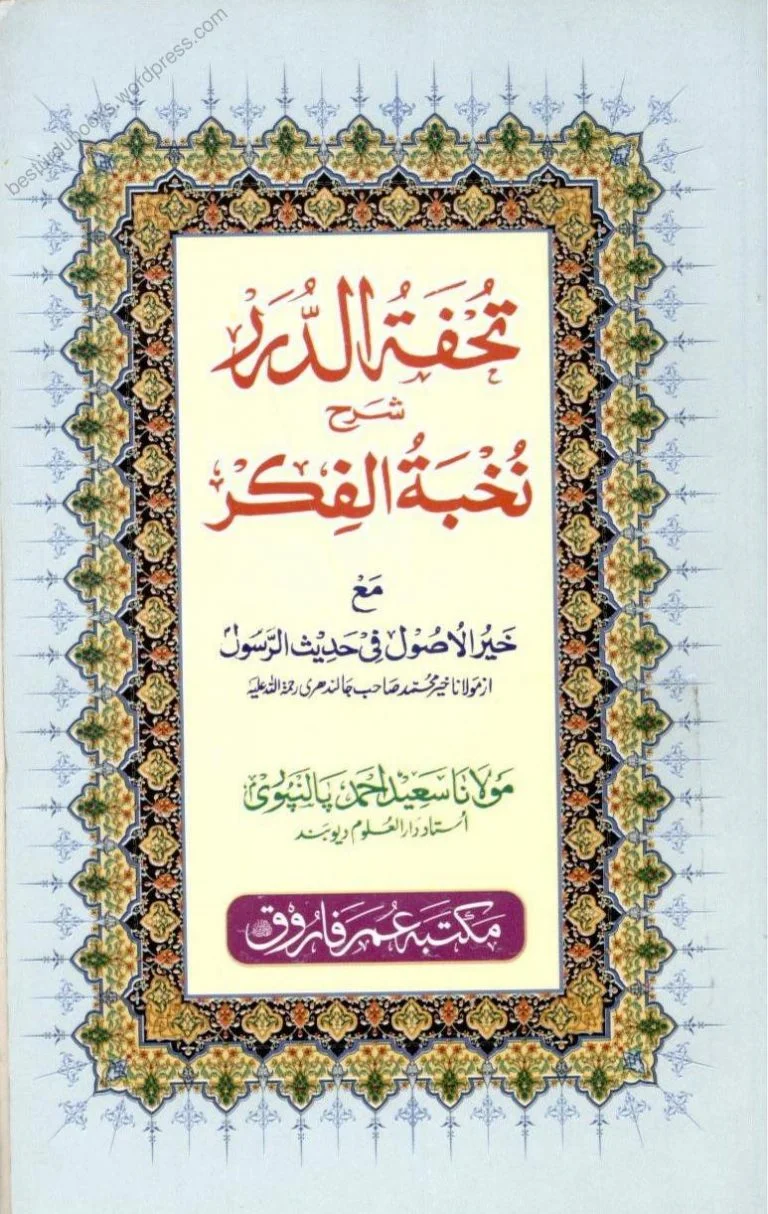 besturdubooks.wordpress.com
تُحْفَۃُ الدُّرَرْ
شَرح
نُخْبَۃُ الفِکَرْ
مَعْ
خَیرُ الْاُصُوْل فِیْ حَدِیْث الرَّسُوْل
از مولانا خیر محمّد صاحب جالندھری رحمۃ اللہ علیہ
مَولانا سَعِیْد اَحمد پَالنپوری
اُستاد دَارالعلوم دیوبند
مکتبہ عُمر فَارُوق